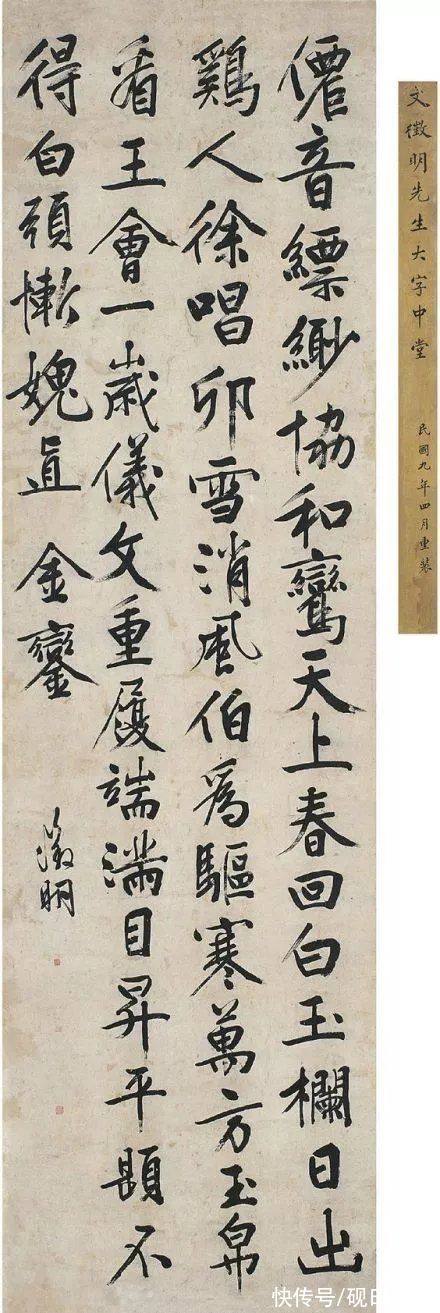 僊音縹緲協和鸞天上春回白玉欄日出
鷄人徐唱卯雪消風伯爲驅寒萬方玉帛
看王會一歲儀文重履端滿目昇平題不
得白頭慚愧直金鑾
徵明
文徵明先生大字中堂
民國九年四月重裝
快传号/砚